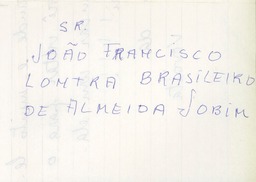 SR.
JOÃO FRANCISCO
LONTRA BRASILEIRO
DE ALMEIDA JOBIM